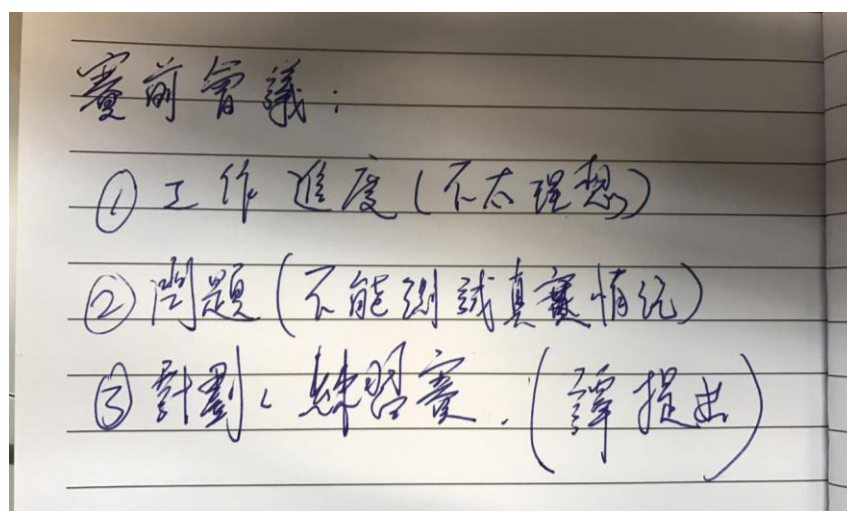 賽前會議：
①工作進度(不太理想)
②問題(不能測試真實情況)
③計劃、練習賽.(譚提出)